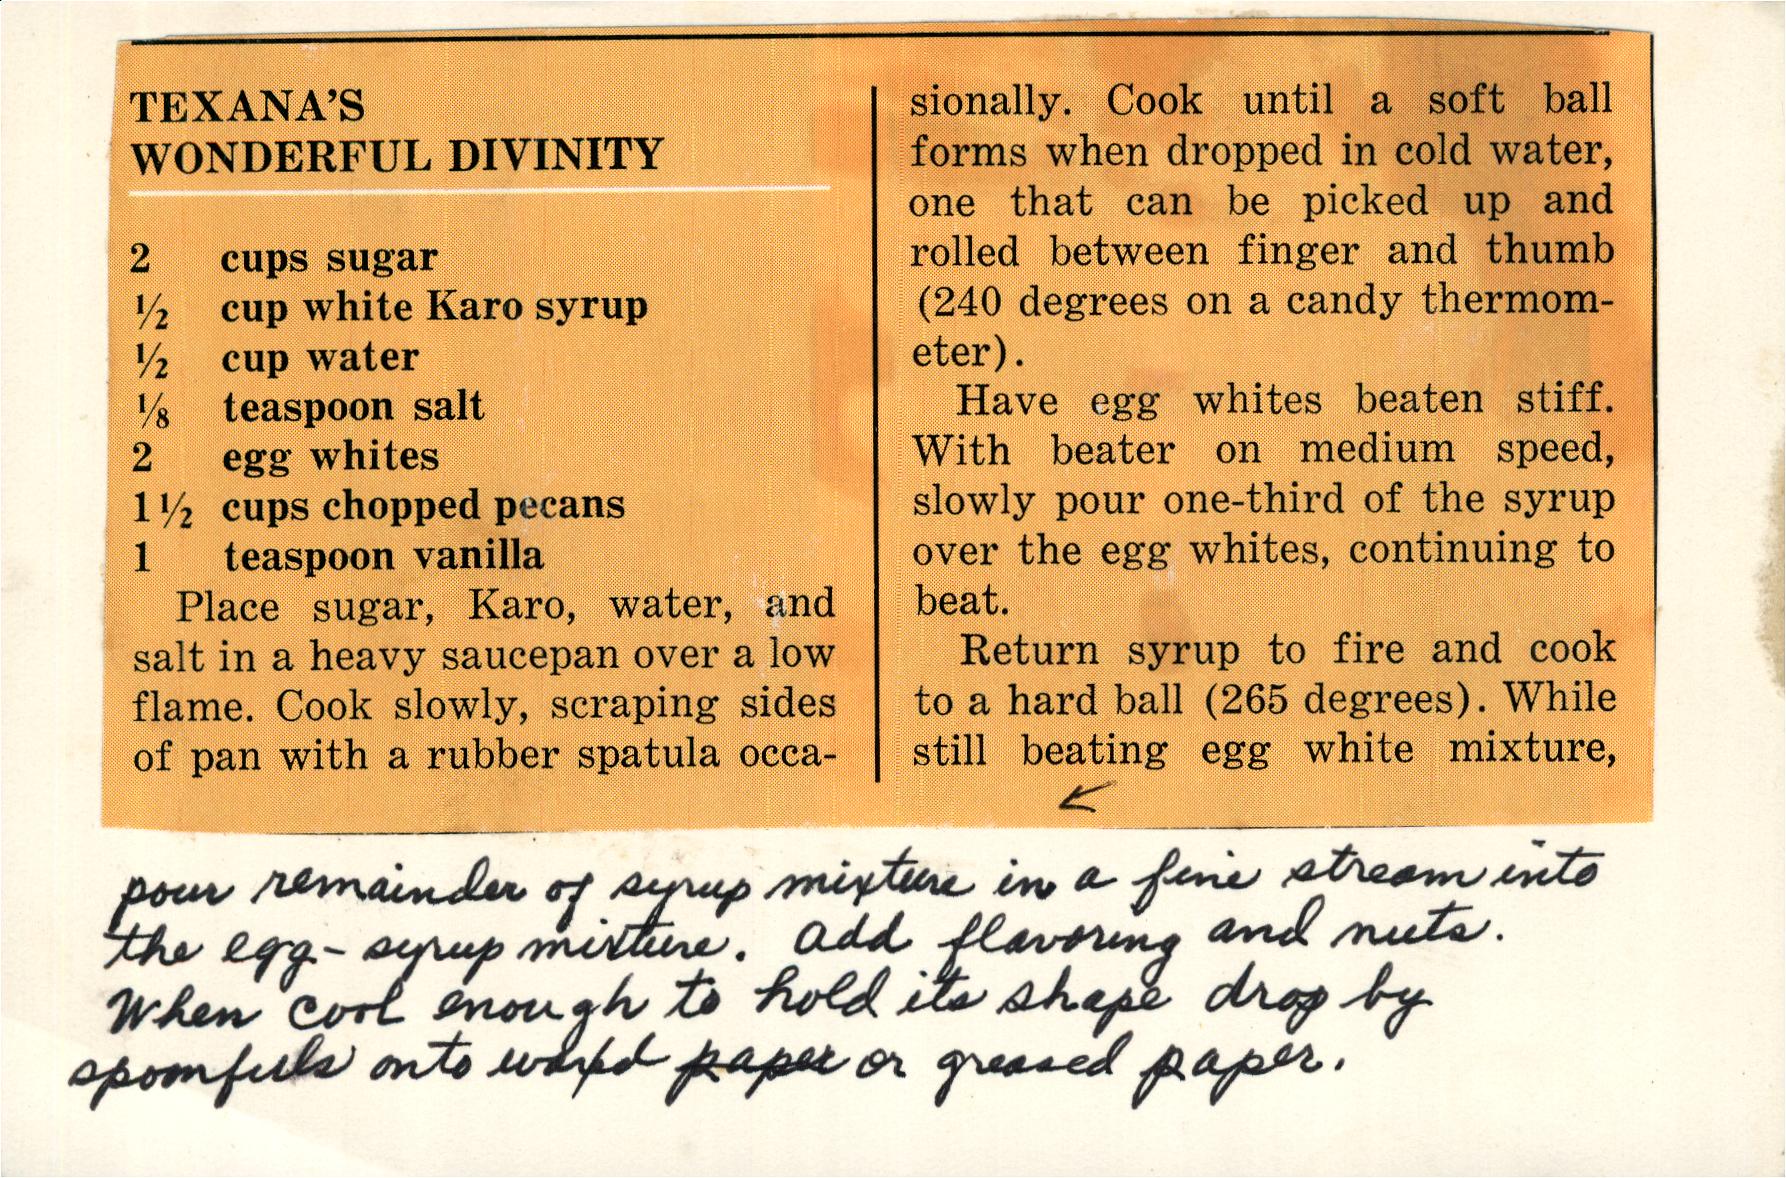 TEXANA'S
WONDERFUL DIVINITY
2 cups sugar
½ cup white Karo syrup
½ cup water
⅛ teaspoon salt
2 egg whites
1½ cups chopped pecans
1 teaspoon vanilla
Place sugar, Karo, water, and
salt in a heavy saucepan over a low
flame. Cook slowly, scraping sides
of pan with a rubber spatula occa-
sionally. Cook until a soft ball
forms when dropped in cold water,
one that can be picked up and
rolled between finger and thumb
(240 degrees on a candy thermom-
eter).
Have egg whites beaten stiff.
With beater on medium speed,
slowly pour one-third of the syrup
over the egg whites, continuing to
beat.
Return syrup to fire and cook
to a hard ball (265 degrees). While
still beating egg white mixture,
pour remainder of syrup mixture in a fine stream into
the egg-syrup mixture. Add flavoring and nuts.
When cool enough to hold its shape drop by
spoonfuls onto waxed paper or greased paper.